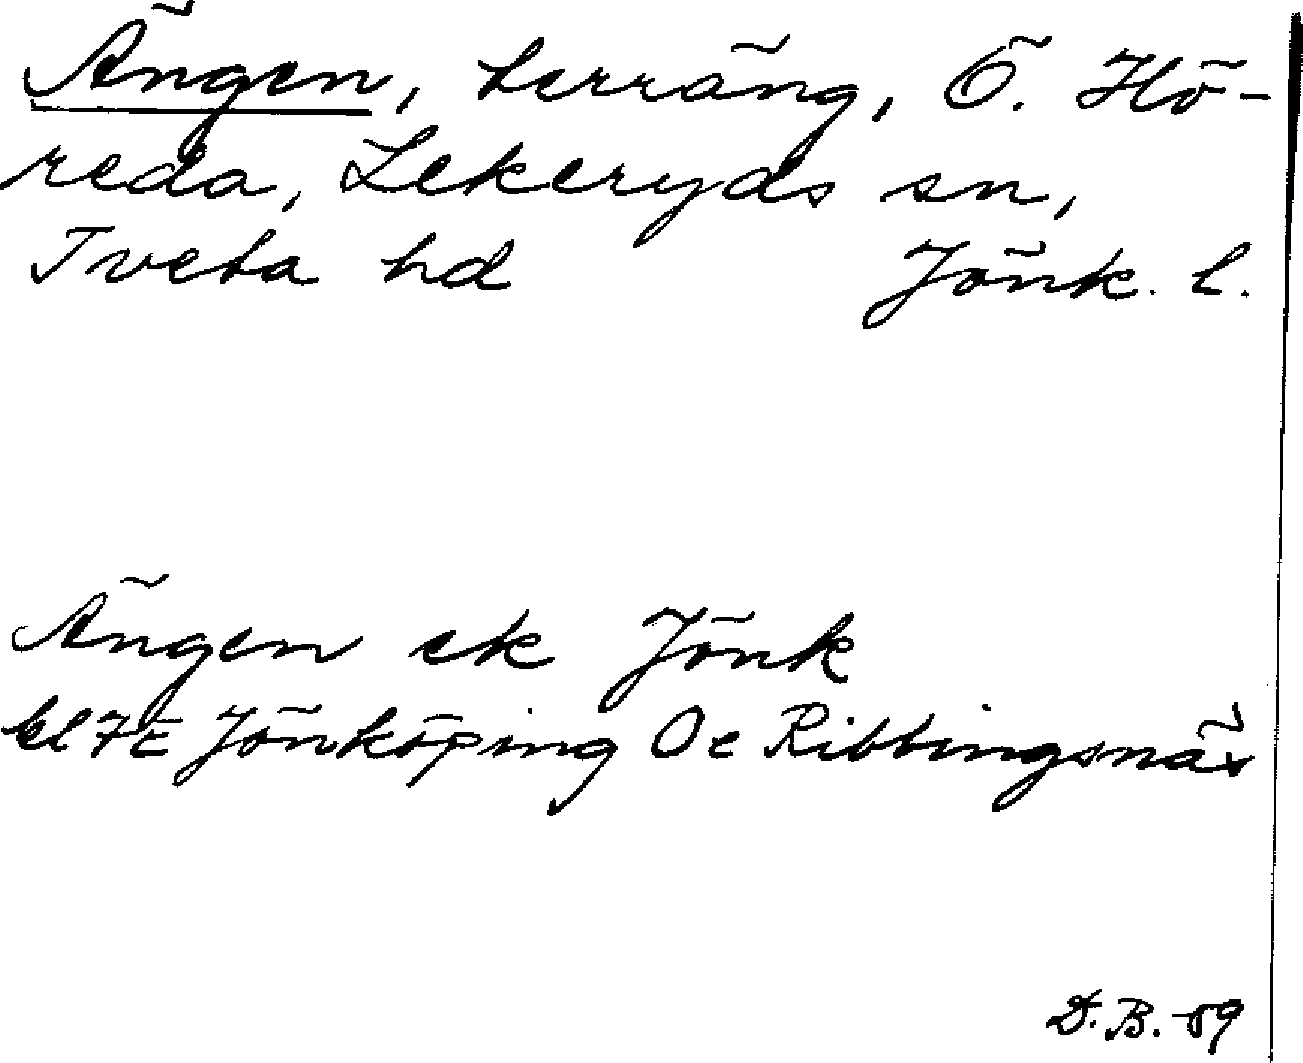 Ängen, terräng, Ö. Hö-
reda, Lekeryds sn,
Tveta hd Jönk. l.
Ängen ek Jönk
bl 7E Jönköping Oe Ribbingsnäs
D.B. -59